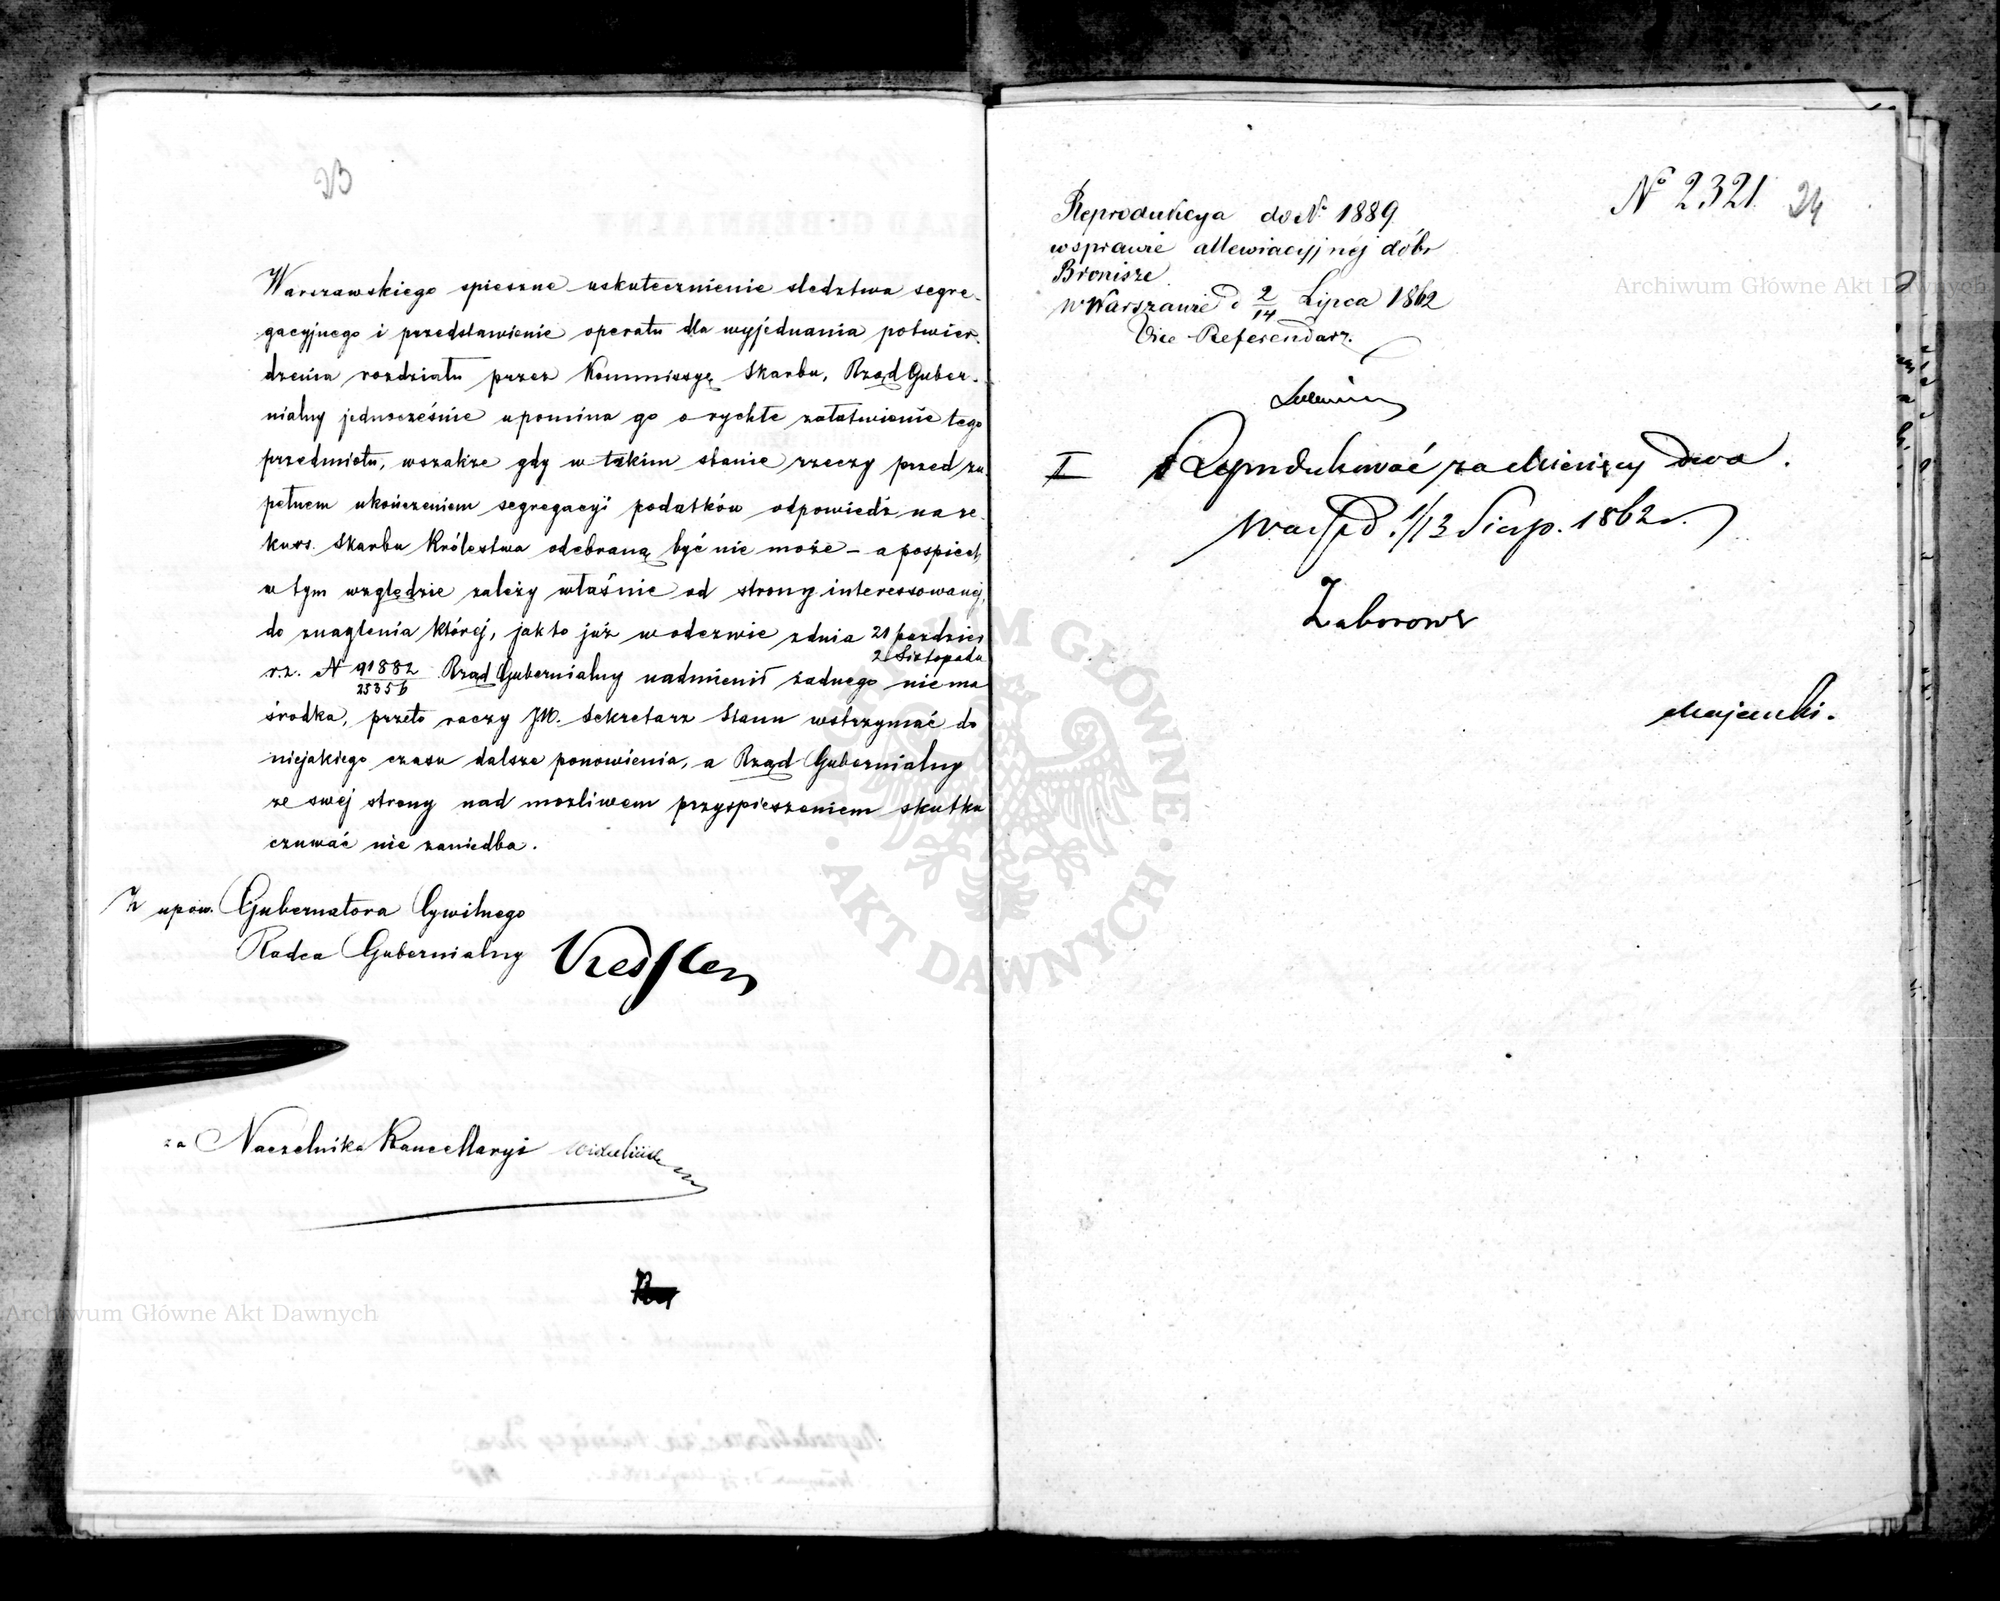 23
Warszawskiego spieszne uskutecznienie sledztwa segre-
gacyjnego i przedstawienie operatu dla wyjednania potwier-
dzenia rozdziału przez Kommissyę Skarbu, Rząd Guber-
nialny jednocześnie upomina go o rychłe załatwienie tego
przedmiotu, wszakże gdy w takim stanie rzeczy przed zu-
pełnem ukończeniem segregacyi podatków odpowiedź na re-
kurs Skarbu Królestwa odebraną być nie może – a pospiech
w tym względzie zależy właśnie od strony interessowanej,
do znaglenia której, jak to już w odezwie z dnia 21 Pazdzier
2 Listopada
r.z. N 91882/25356 Rząd Gubernialny nadmienił żadnego niema
środka, przeto raczy JW. Sekretarz Stanu wstrzymać do
niejakiego czasu dalsze ponowienia, a Rząd Gubernialny
ze swéj strony nad możliwem przyspieszeniem skutku
czuwać nie zaniedba.
Z upow. Gubernatora Cywilnego
Radca Gubernialny
za Naczelnika Kancellaryi
Nº 2321. 24
Reprodukcya do Nº 1889
w sprawie allewiacyjnéj dóbr
Bronisze
w Warszawie d. 2/14 Lipca 1862
Vice Referendarz.
I Reprodukować za miesięcy dwa.
Warsz d. 1/13 Sierp. 1862 r.
Zaborows
Majewski.
Archiwum Główne Akt Dawnych
Archiwum Główne Akt Dawnych
ARCHIWUM GŁÓWNE · AKT DAWNYCH ·